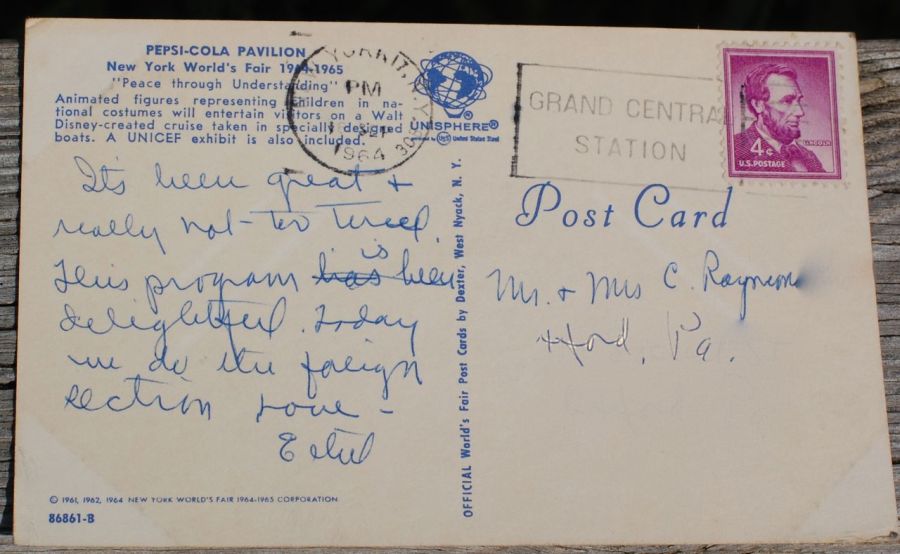 PEPSI-COLA PAVILION
New York World's Fair 1964-1965
"Peace through Understanding"
Animated figures representing children in na-
tional costumes will entertain visitors on a Walt
Disney-created cruise taken in specially designed
boats. A UNICEF exhibit is also included.
PM
SEP
1964
UNISPHERE®
United States Steel
GRAND CENTRAL
STATION
LINCOLN
4¢
U.S. POSTAGE
Post Card
It's been great +
really not too tired.
is
This program has been
delightful. Today
we do the foreign
section Love -
Ethel
Mr. + Mrs C. Raymond
Hord, Pa.
OFFICIAL World's Fair Post Cards by Dexter, West Nyack, N. Y.
© 1961, 1962, 1964 NEW YORK WORLD'S FAIR 1964-1965 CORPORATION.
86861-B